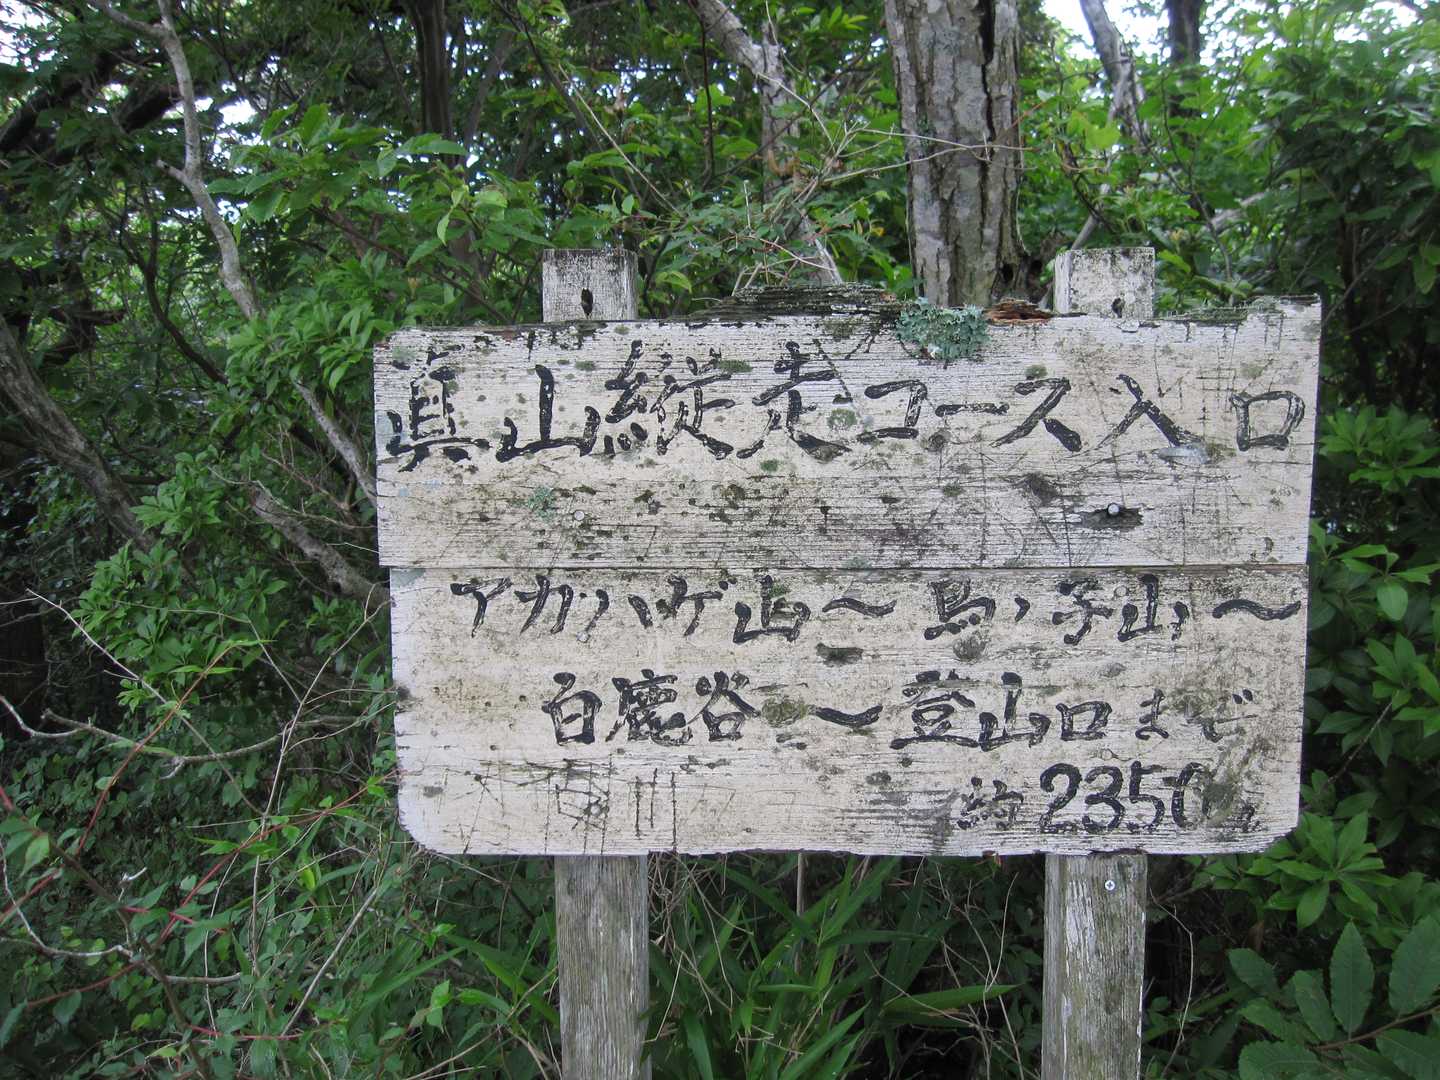 眞山縦走コース入口
イカハゲ山〜鳥ノ子山〜
白鹿谷〜登山口まで
約2350m